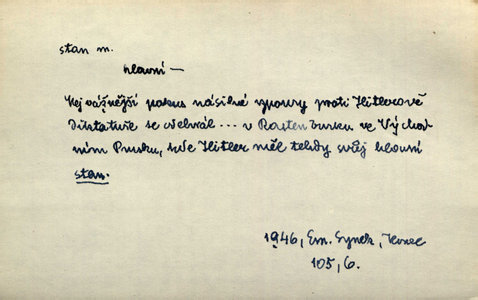 stan m.
hlavní —
Nejvážnější pokus násilné vzpoury proti Hitlerově
diktatuře se odehrál ... v Rastenburku ve Východ
ním Prusku, kde Hitler měl tehdy svůj hlavní
stan.
1946, Em. Synek, Konec
105, 6.